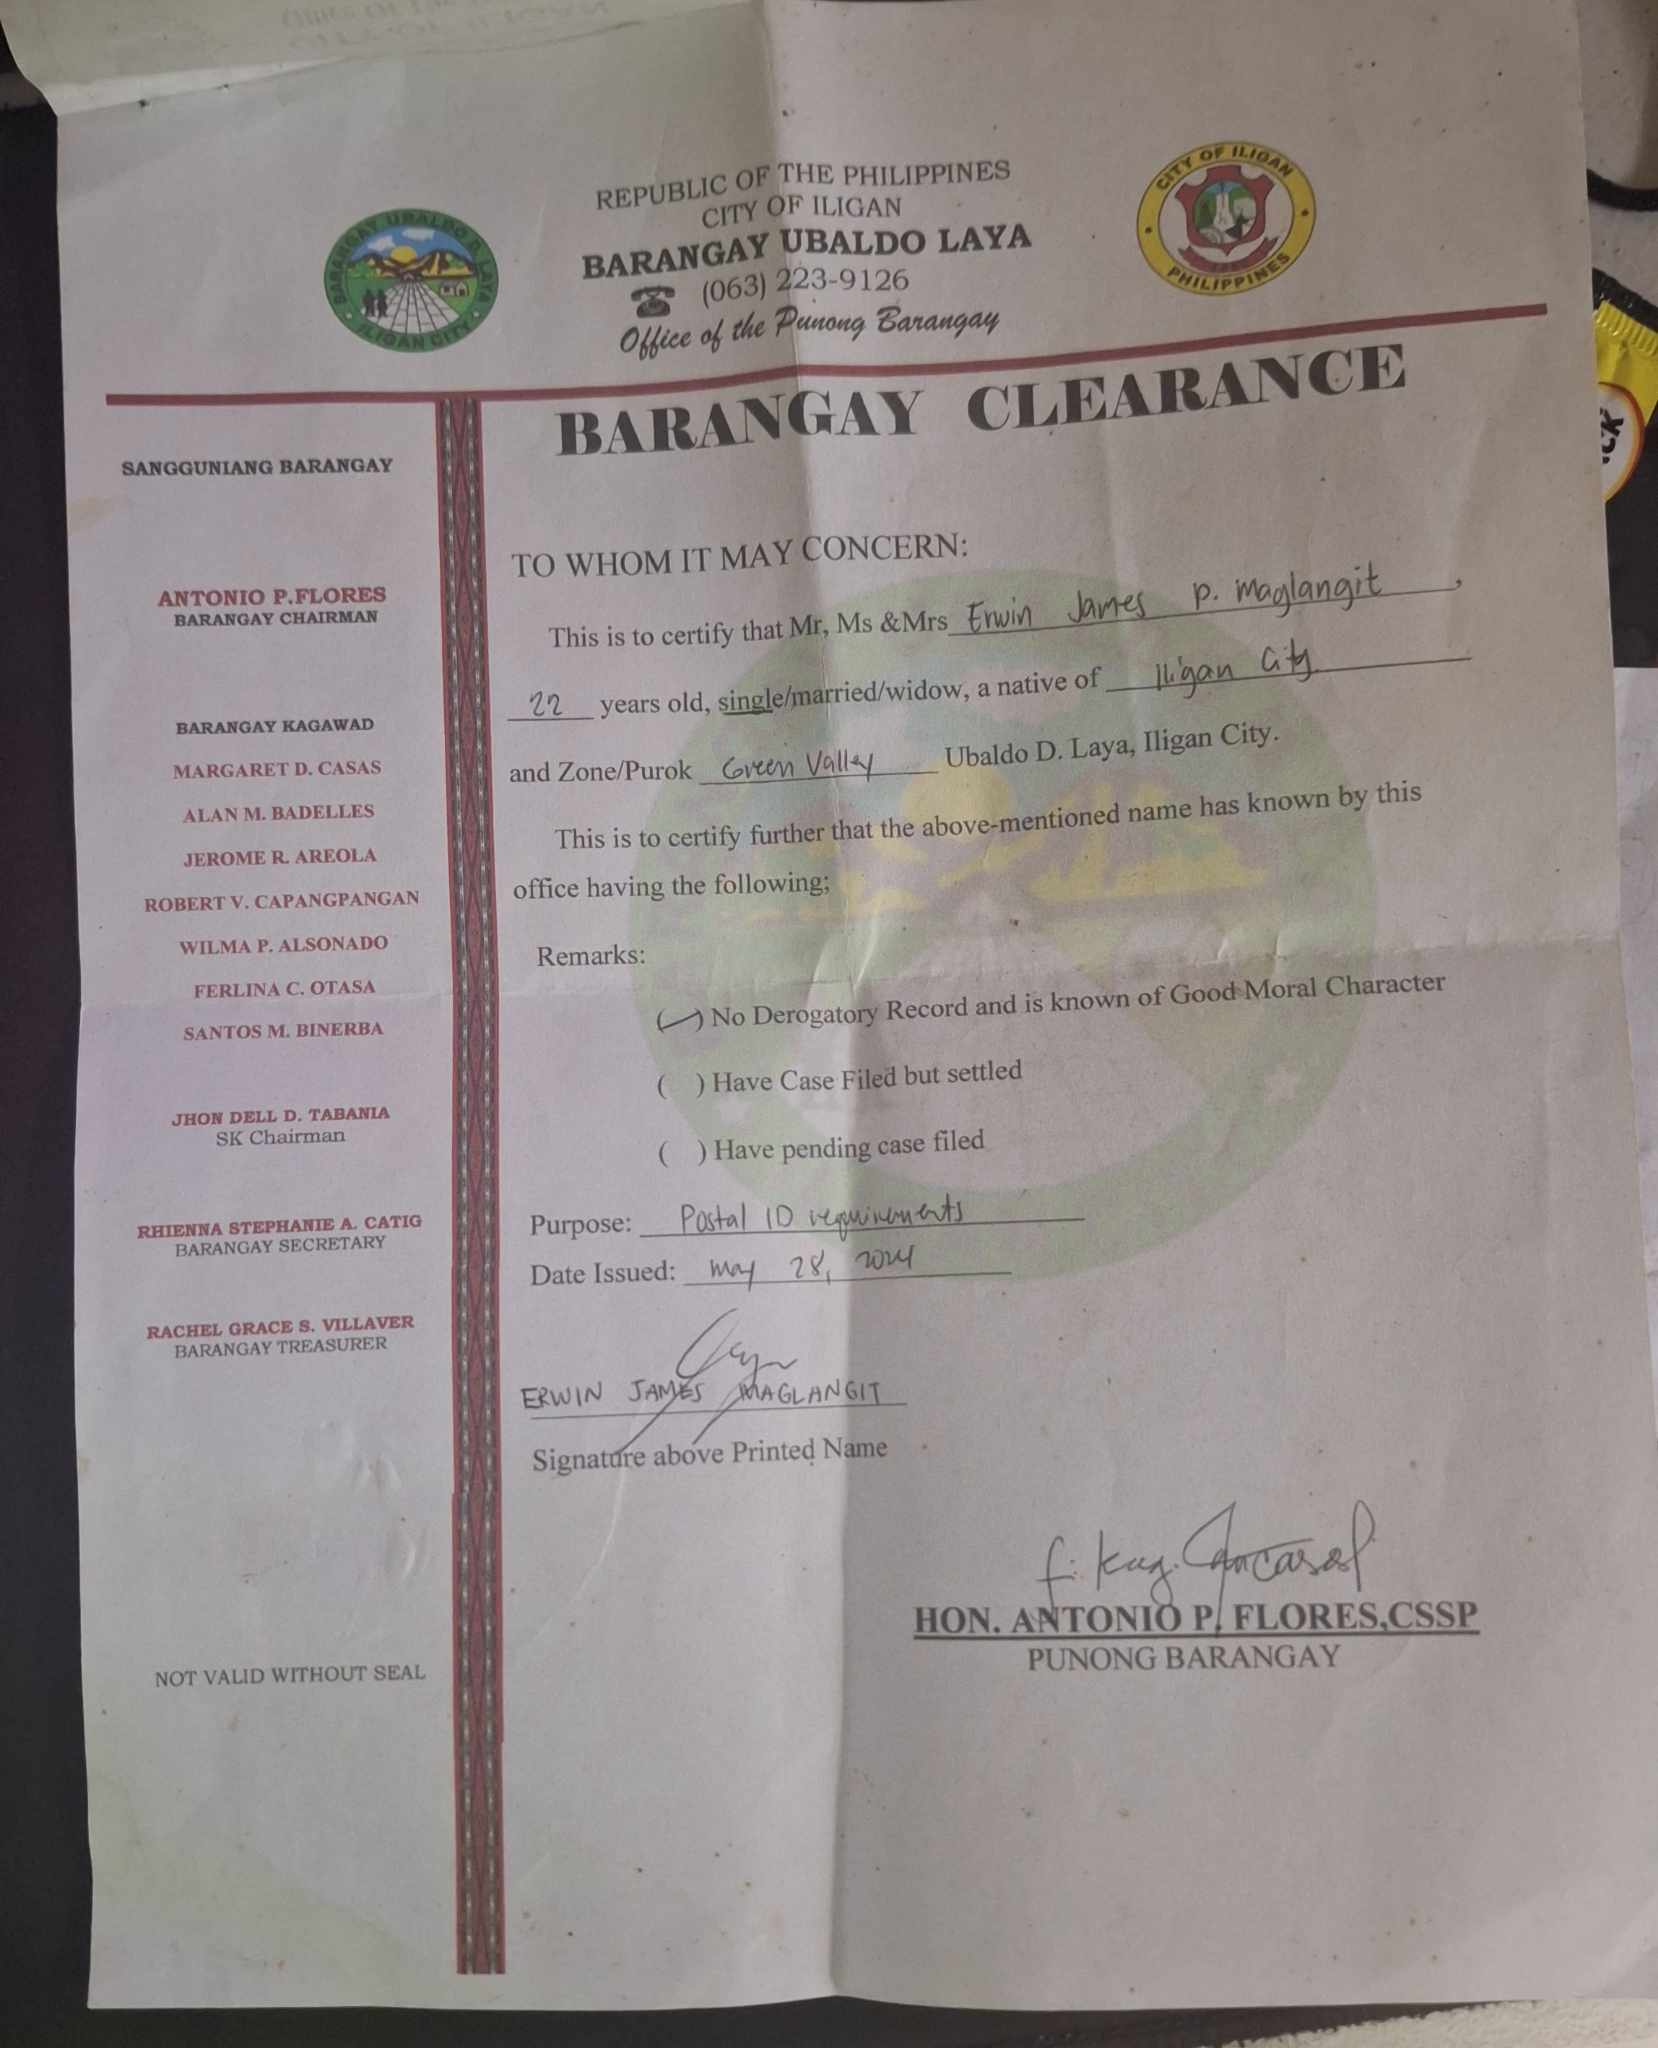 REPUBLIC OF THE PHILIPPINES
CITY OF ILIGAN
BARANGAY UBALDO LAYA
(063) 223-9126
Office of the Punong Barangay
BARANGAY UBALDO D. LAYA
ILIGAN CITY
CITY OF ILIGAN
PHILIPPINES
BARANGAY CLEARANCE
SANGGUNIANG BARANGAY
ANTONIO P.FLORES
BARANGAY CHAIRMAN
BARANGAY KAGAWAD
MARGARET D. CASAS
ALAN M. BADELLES
JEROME R. AREOLA
ROBERT V. CAPANGPANGAN
WILMA P. ALSONADO
FERLINA C. OTASA
SANTOS M. BINERBA
JHON DELL D. TABANIA
SK Chairman
RHIENNA STEPHANIE A. CATIG
BARANGAY SECRETARY
RACHEL GRACE S. VILLAVER
BARANGAY TREASURER
NOT VALID WITHOUT SEAL
TO WHOM IT MAY CONCERN:
This is to certify that Mr, Ms &Mrs Erwin James P. Maglangit,
22 years old, single/married/widow, a native of Iligan City
and Zone/Purok Green Valley Ubaldo D. Laya, Iligan City.
This is to certify further that the above-mentioned name has known by this
office having the following;
Remarks:
(✓) No Derogatory Record and is known of Good Moral Character
( ) Have Case Filed but settled
( ) Have pending case filed
Purpose: Postal ID requirements
Date Issued: May 28, 2024
ERWIN JAMES MAGLANGIT
Signature above Printed Name
HON. ANTONIO P. FLORES,CSSP
PUNONG BARANGAY